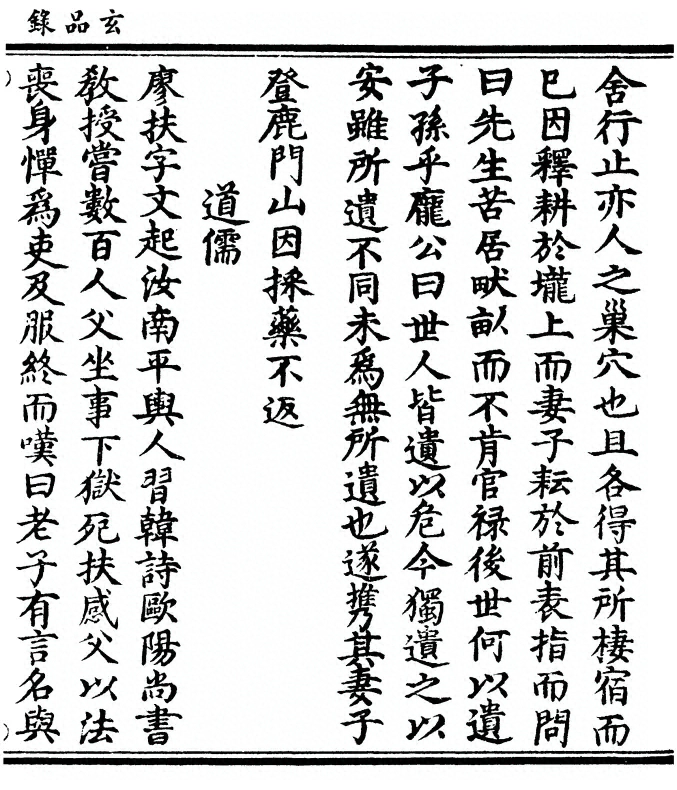 玄品錄
舍行止亦人之巢穴也且各得其所棲宿而
已因釋耕於壠上而妻子耘於前表指而問
曰先生苦居畎畝而不肯官祿後世何以遺
子孫乎龐公曰世人皆遺以危今獨遺之以
安雖所遺不同未爲無所遺也遂攜其妻子
登鹿門山因採藥不返
道儒
廖扶字文起汝南平輿人習韓詩歐陽尚書
教授嘗數百人父坐事下獄死扶感父以法
喪身憚爲吏及服終而嘆曰老子有言名與